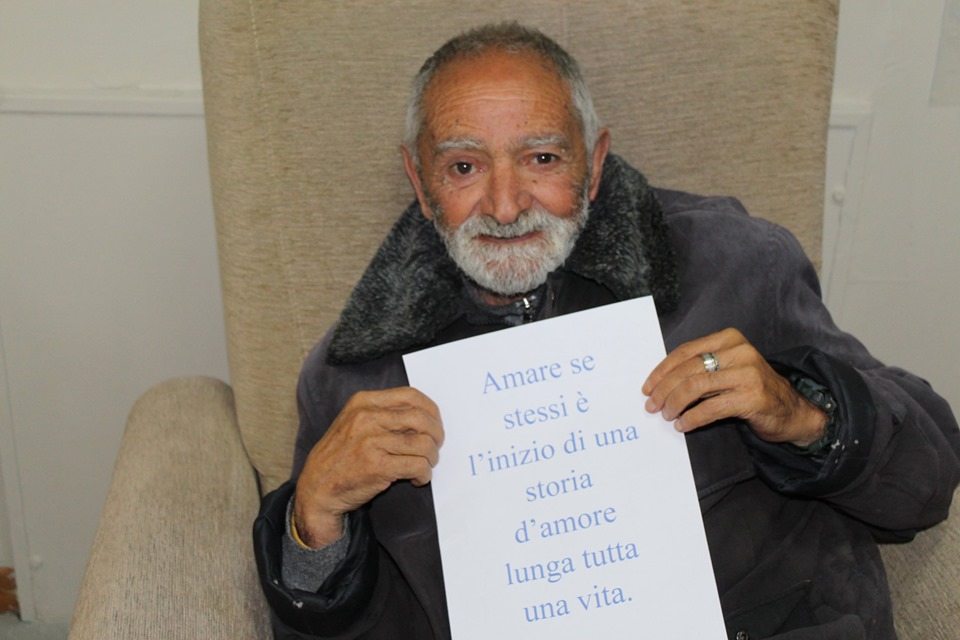 Amare se
stessi è
l’inizio di una
storia
d’amore
lunga tutta
una vita.